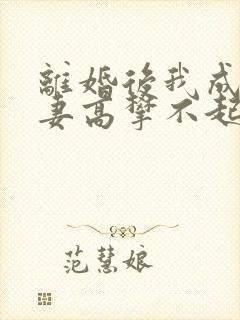 離婚後我成
妻高攀不起
范慧娘